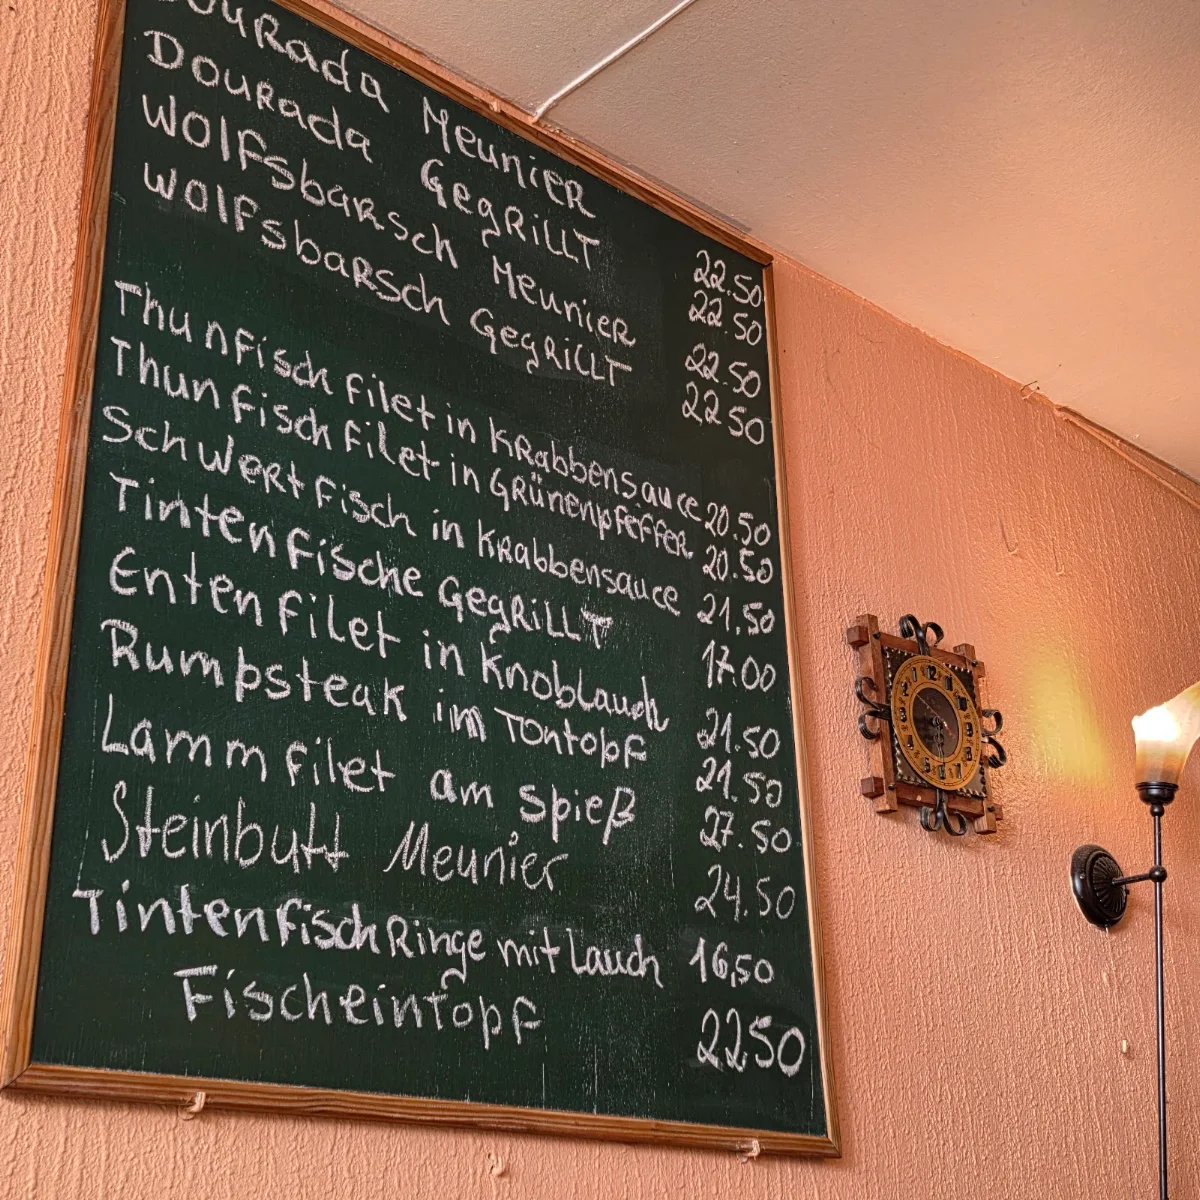 DOURada MeuniER 22.50
DOURada GegRiLLT 22.50
WolfsbaRsch MeuniER 22.50
WolfsbaRsch GegRiLLT 22.50
Thunfisch filet in KRabbensauce 20.50
Thunfisch filet in GRünenpfeffer 20.50
Schwertfisch in KRabbensauce 21.50
Tintenfische GegRiLLT 17.00
Entenfilet in Knoblauch 21.50
Rumpsteak im Tontopf 21.50
Lammfilet am Spieß 27.50
Steinbutt Meunier 24.50
TintenfischRinge mit Lauch 16,50
Fischeintopf 22.50